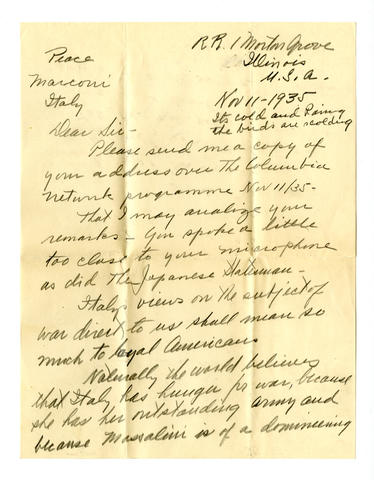 R.R. 1 Morton Grove
Illinois
U.S.A.
Peace
Marconi
Italy
Nov 11-1935
Its cold and Rainy
the birds are scolding
Dear Sir-
Please send me a copy of
your address over the Columbia
network programme Nov 11/35-
That I may analize your
remarks - You spoke a little
too close to your microphone
as did the Japanese
Italys views on the subject of
war direct to us shall mean so
much to loyal Americans
Naturally the world believes
that Italy has hunger for war, because
she has her outstanding army and
because Massalini is of a domineering